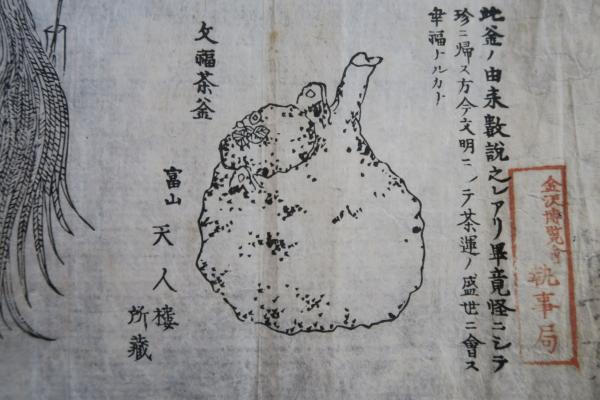 此釜ノ由来数説之レアリ畢竟怪ニシテ
珍ニ帰ス方今文明ニシテ茶運ノ盛世ニ會ス
幸福トルカト
文福茶釜
富山 天人樓
所藏
金沢博覧會
執事局